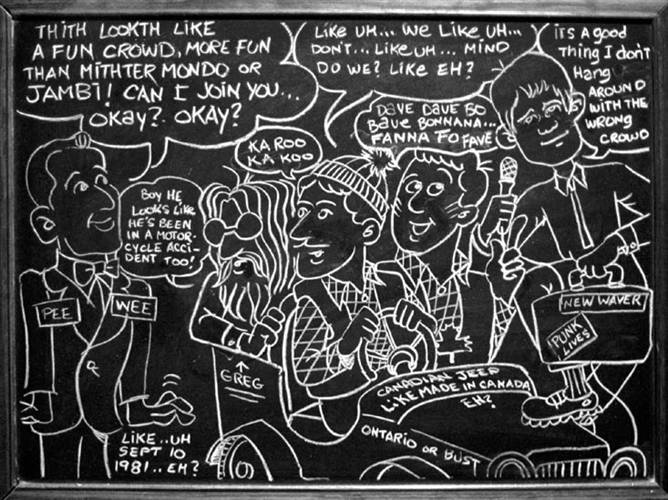 THITH LOOKTH LIKE
A FUN CROWD, MORE FUN
THAN MITHTER MONDO OR
JAMBI! CAN I JOIN YOU...
OKAY? OKAY?
LIKE UH... WE LIKE UH...
DON'T... LIKE UH... MIND
DO WE? LIKE EH?
ITS A GOOD
THING I DON'T
HANG
AROUND
WITH THE
WRONG
CROWD
DAVE DAVE BO
BAVE BONNANA...
FANNA FO FAVE
KA ROO
KA KOO
BOY HE
LOOKS LIKE
HE'S BEEN
IN A MOTOR-
CYCLE ACCI-
DENT TOO!
PEE
WEE
GREG
NEW WAVER
PUNK
LIVES
CANADIAN JEEP
LIKE MADE IN CANADA
EH?
ONTARIO OR BUST
LIKE..UH
SEPT 10
1981..EH?